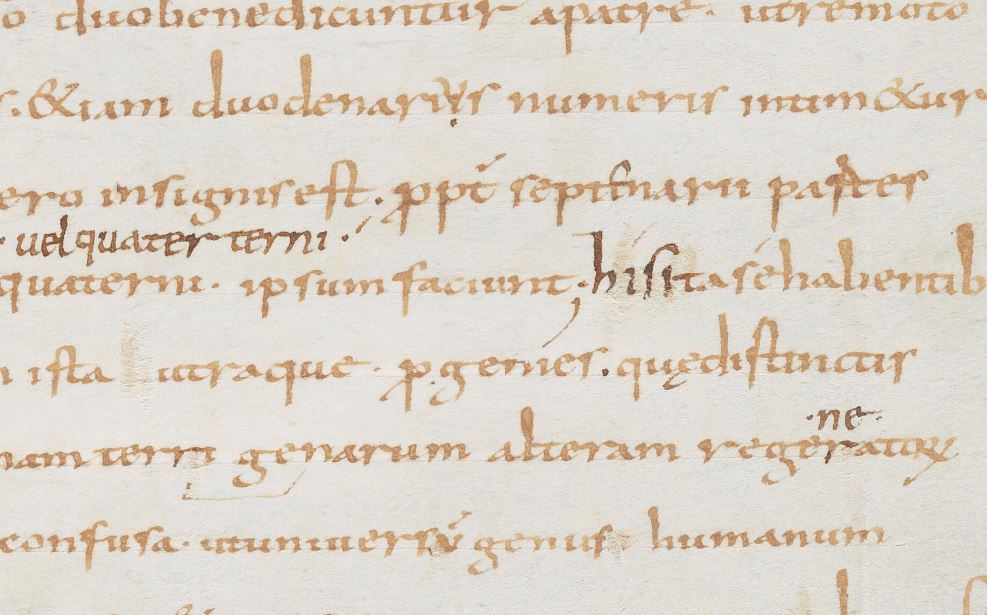 duo benedicuntur apatre · utremoto
&iam duodenariis numeris intim&ur
insignis est . ꝓpt̄ septenarii partes
· uel quater terni ·
quaterni · ipsum faciunt ; his ita se habentib
ista utraque · ꝓgenies . quę distinctis
· ne ·
terri genarum alteram regeratorꝝ
confusa · ut uniuersū genus humanum